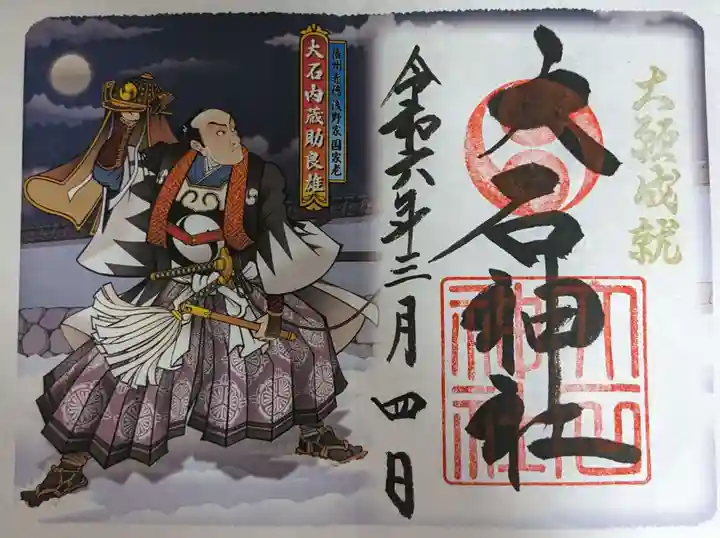 大願成就
大石神社
令和六年三月四日
播州赤穂浅野家国家老
大石内蔵助良雄
大石
神社